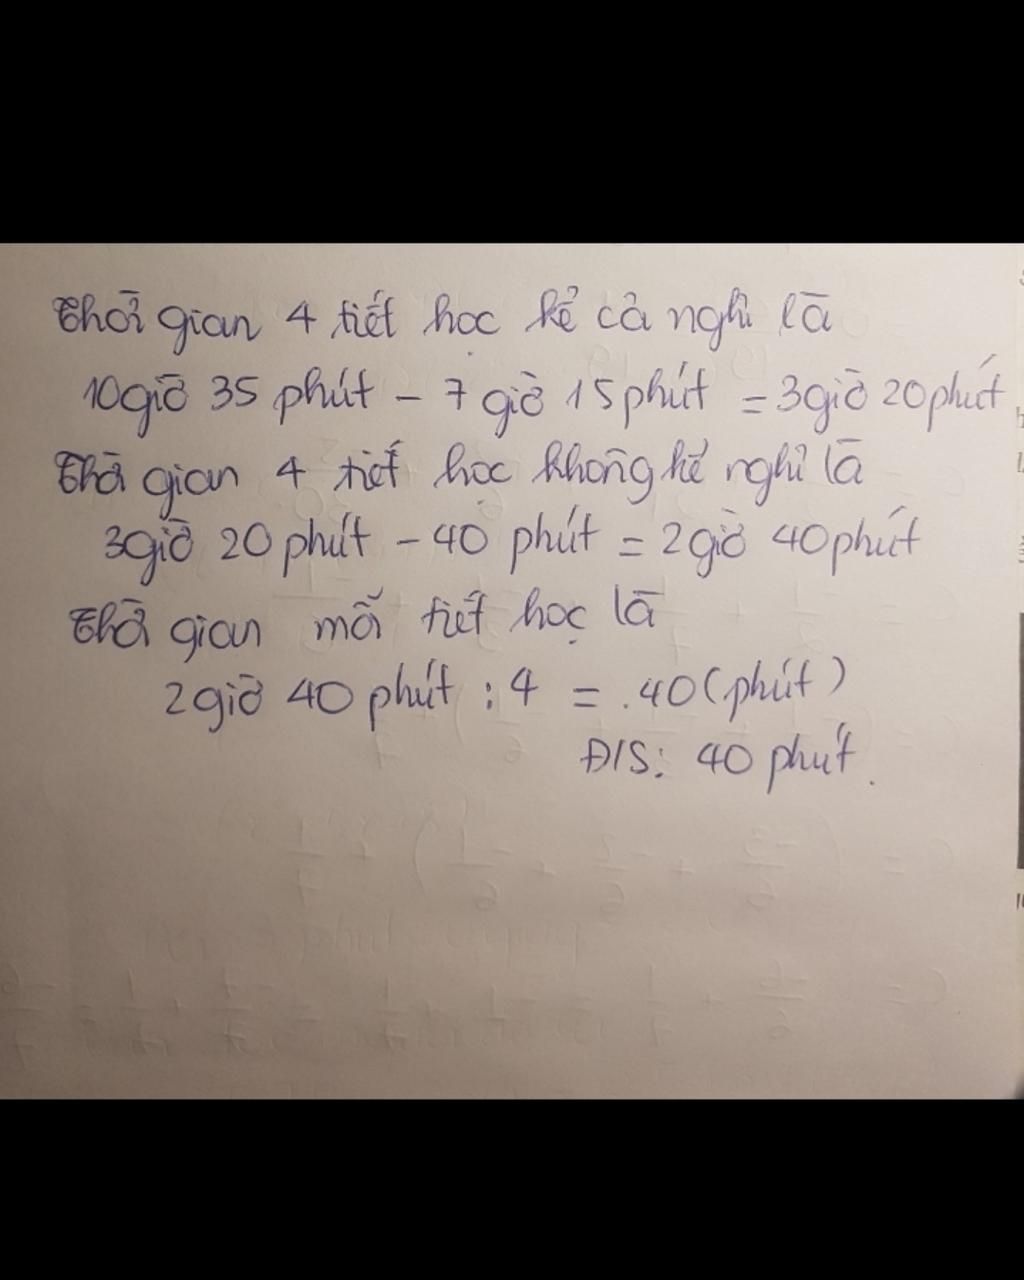 Thời gian 4 tiết học kể cả nghỉ là
10giờ 35 phút - 7 giờ 15 phút = 3giờ 20 phút
Thời gian 4 tiết học không kể nghỉ là
3giờ 20 phút - 40 phút = 2giờ 40 phút
Thời gian mỗi tiết học là
2giờ 40 phút : 4 = 40 (phút)
Đ/S: 40 phút.